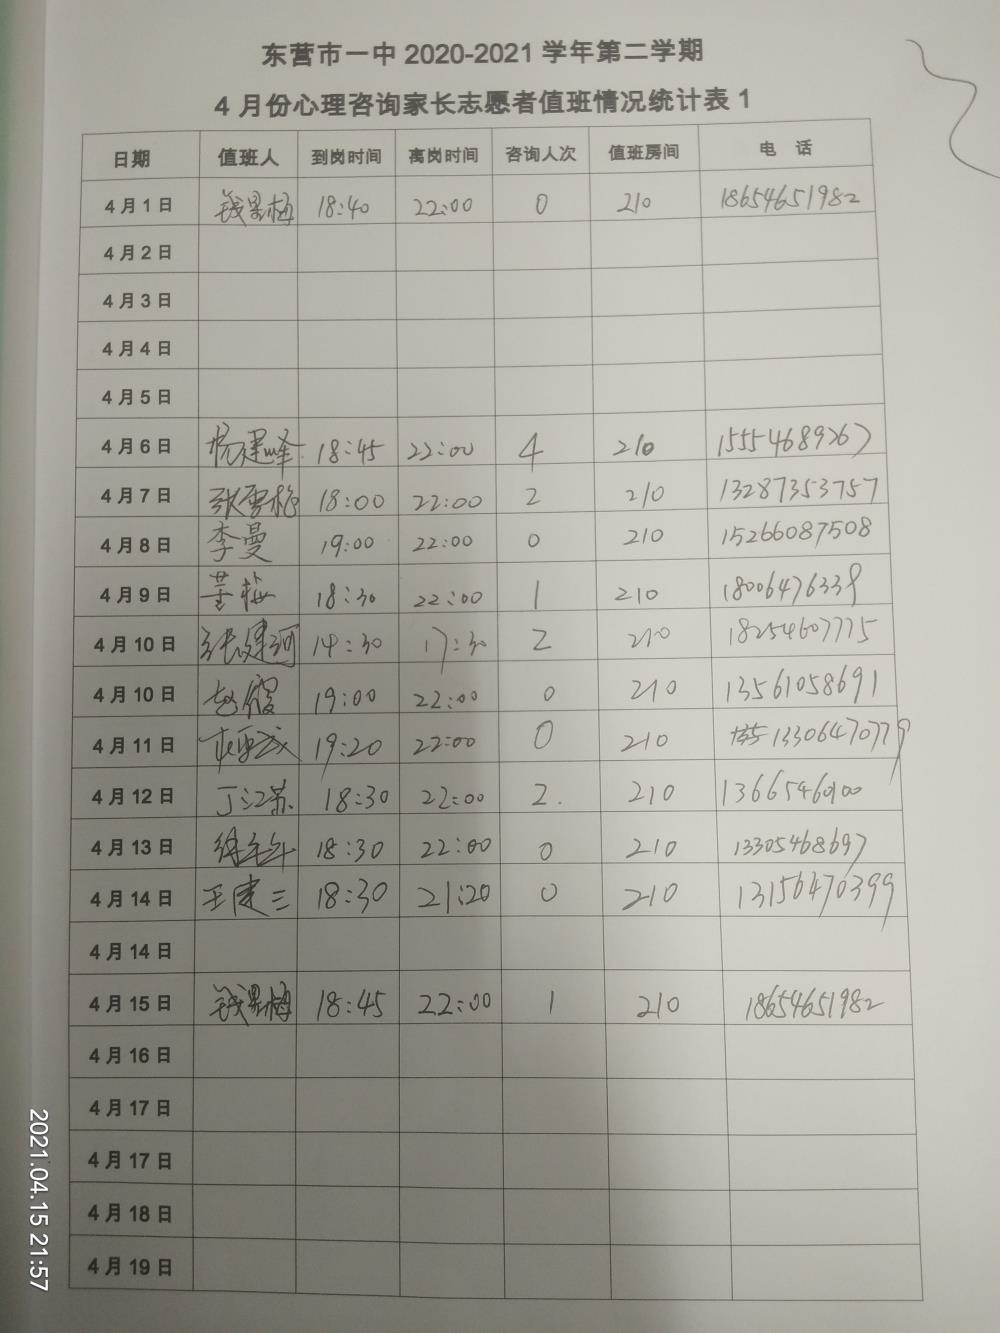 东营市一中 2020-2021 学年第二学期
4 月份心理咨询家长志愿者值班情况统计表 1
日期 值班人 到岗时间 离岗时间 咨询人次 值班房间 电 话
4 月 1 日 钱翠梅 18:40 22:00 0 210 18654651982
4 月 2 日
4 月 3 日
4 月 4 日
4 月 5 日
4 月 6 日 杨建峰 18:45 22:00 4 210 15554689267
4 月 7 日 张雪梅 18:00 22:00 2 210 13287353757
4 月 8 日 李曼 19:00 22:00 0 210 15266087508
4 月 9 日 董梅 18:30 22:00 1 210 18006476339
4 月 10 日 张建河 14:30 17:30 2 210 18254607775
4 月 10 日 赵霞 19:00 22:00 0 210 13561058691
4 月 11 日 19:20 22:00 0 210 13306470779
4 月 12 日 丁江苏 18:30 22:00 2. 210 13665460100
4 月 13 日 18:30 22:00 0 210 13305468697
4 月 14 日 王建三 18:30 21:20 0 210 13156470399
4 月 14 日
4 月 15 日 钱翠梅 18:45 22:00 1 210 18654651982
4 月 16 日
4 月 17 日
4 月 17 日
4 月 18 日
4 月 19 日
2021.04.15 21:57